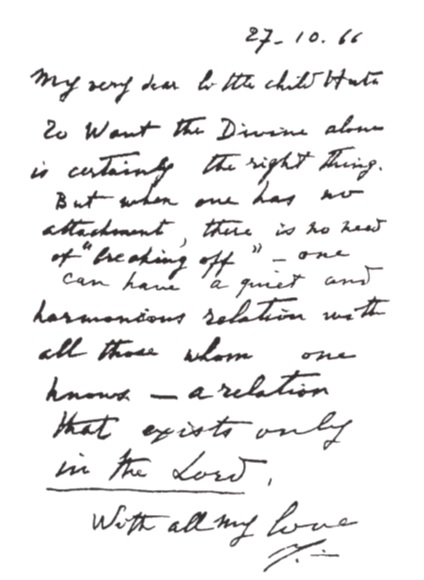 27-10.66
My very dear little child Huta
To Want the Divine alone
is certainly the right thing.
But when one has no
attachment, there is no need
of "breaking off" - one
can have a quiet and
harmonious relation with
all those whom one
knows — a relation
that exists only
in the Lord.
With all my love